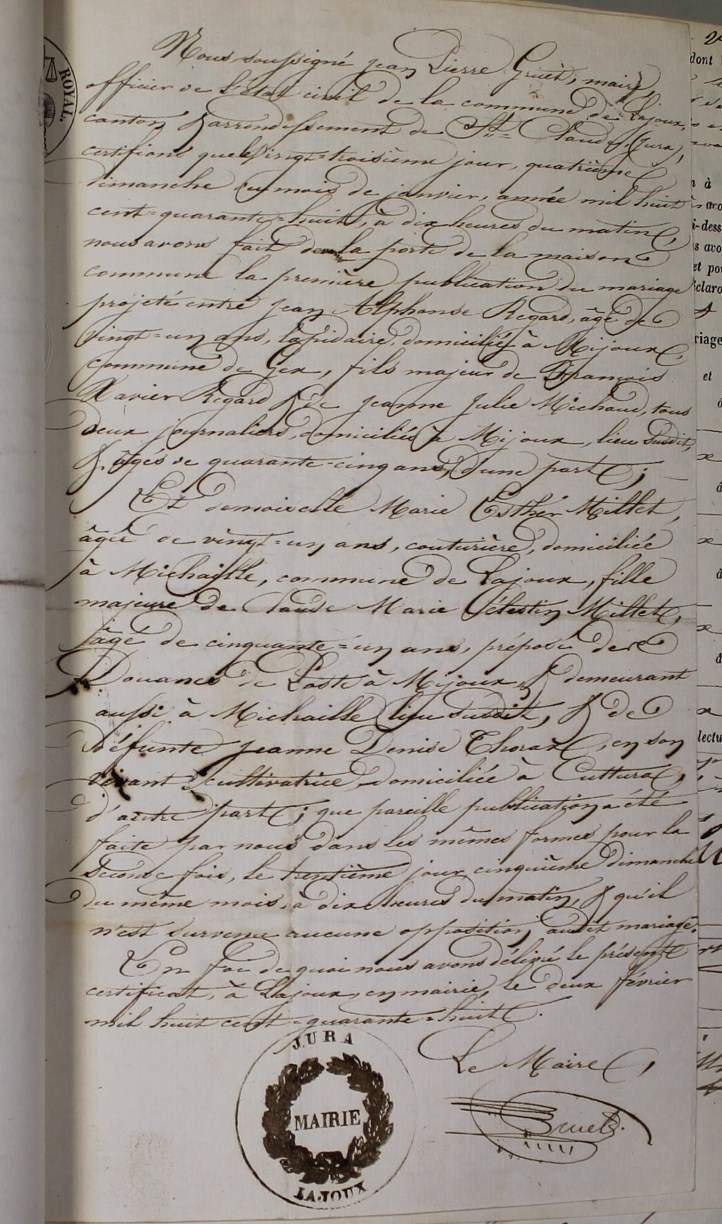 ROYAL.
Nous soussigné Jean Pierre Gruet, maire,
officier de l'état civil de la commune de Lajoux,
canton & arrondissement de St. Claude (Jura),
certifions que le vingt-troisième jour, quatrième
dimanche du mois de janvier, année mil huit
cent-quarante-huit, à dix heures du matin,
nous avons fait devant la porte de la maison
commune la première publication du mariage
projeté entre Jean Alphonse Regard, âgé de
vingt-un ans, lapidaire, domicilié à Mijoux,
commune de Gex, fils majeur de François
Xavier Regard & de Jeanne Julie Michaud, tous
deux journaliers, domiciliés à Mijoux, lieu susdit,
& âgés de quarante-cinq ans, d'une part;
Et demoiselle Marie Esther Millet,
âgée de vingt-un ans, couturière, domiciliée
à Michaille, commune de Lajoux, fille
majeure de Claude Marie Célestin Millet,
âgé de cinquante-un ans, préposé des
Douanes de Poste à Mijoux, & demeurant
aussi à Michaille lieu susdit, & de
défunte Jeanne Denise Thoraz, en son
vivant cultivatrice domiciliée à Cuttura,
d'autre part; que pareille publication a été
faite par nous dans les mêmes formes pour la
seconde fois, le trentième jour cinquième dimanche
du même mois, à dix heures du matin, & qu'il
n'est survenu aucune opposition audit mariage.
En foi de quoi nous avons délivré le présent
certificat, à Lajoux, en mairie, le deux février
mil huit cent-quarante-huit.
Le Maire,
Gruet.
JURA
MAIRIE
LAJOUX